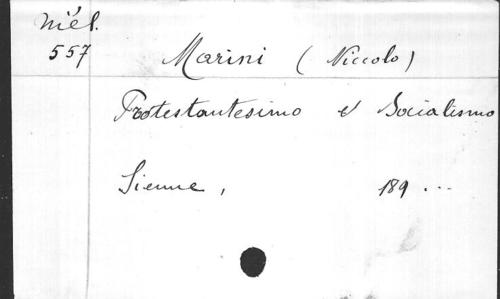 Mél.
557
Marini (Niccolo)
Protestantesimo e Socialismo
Sienne, 189...